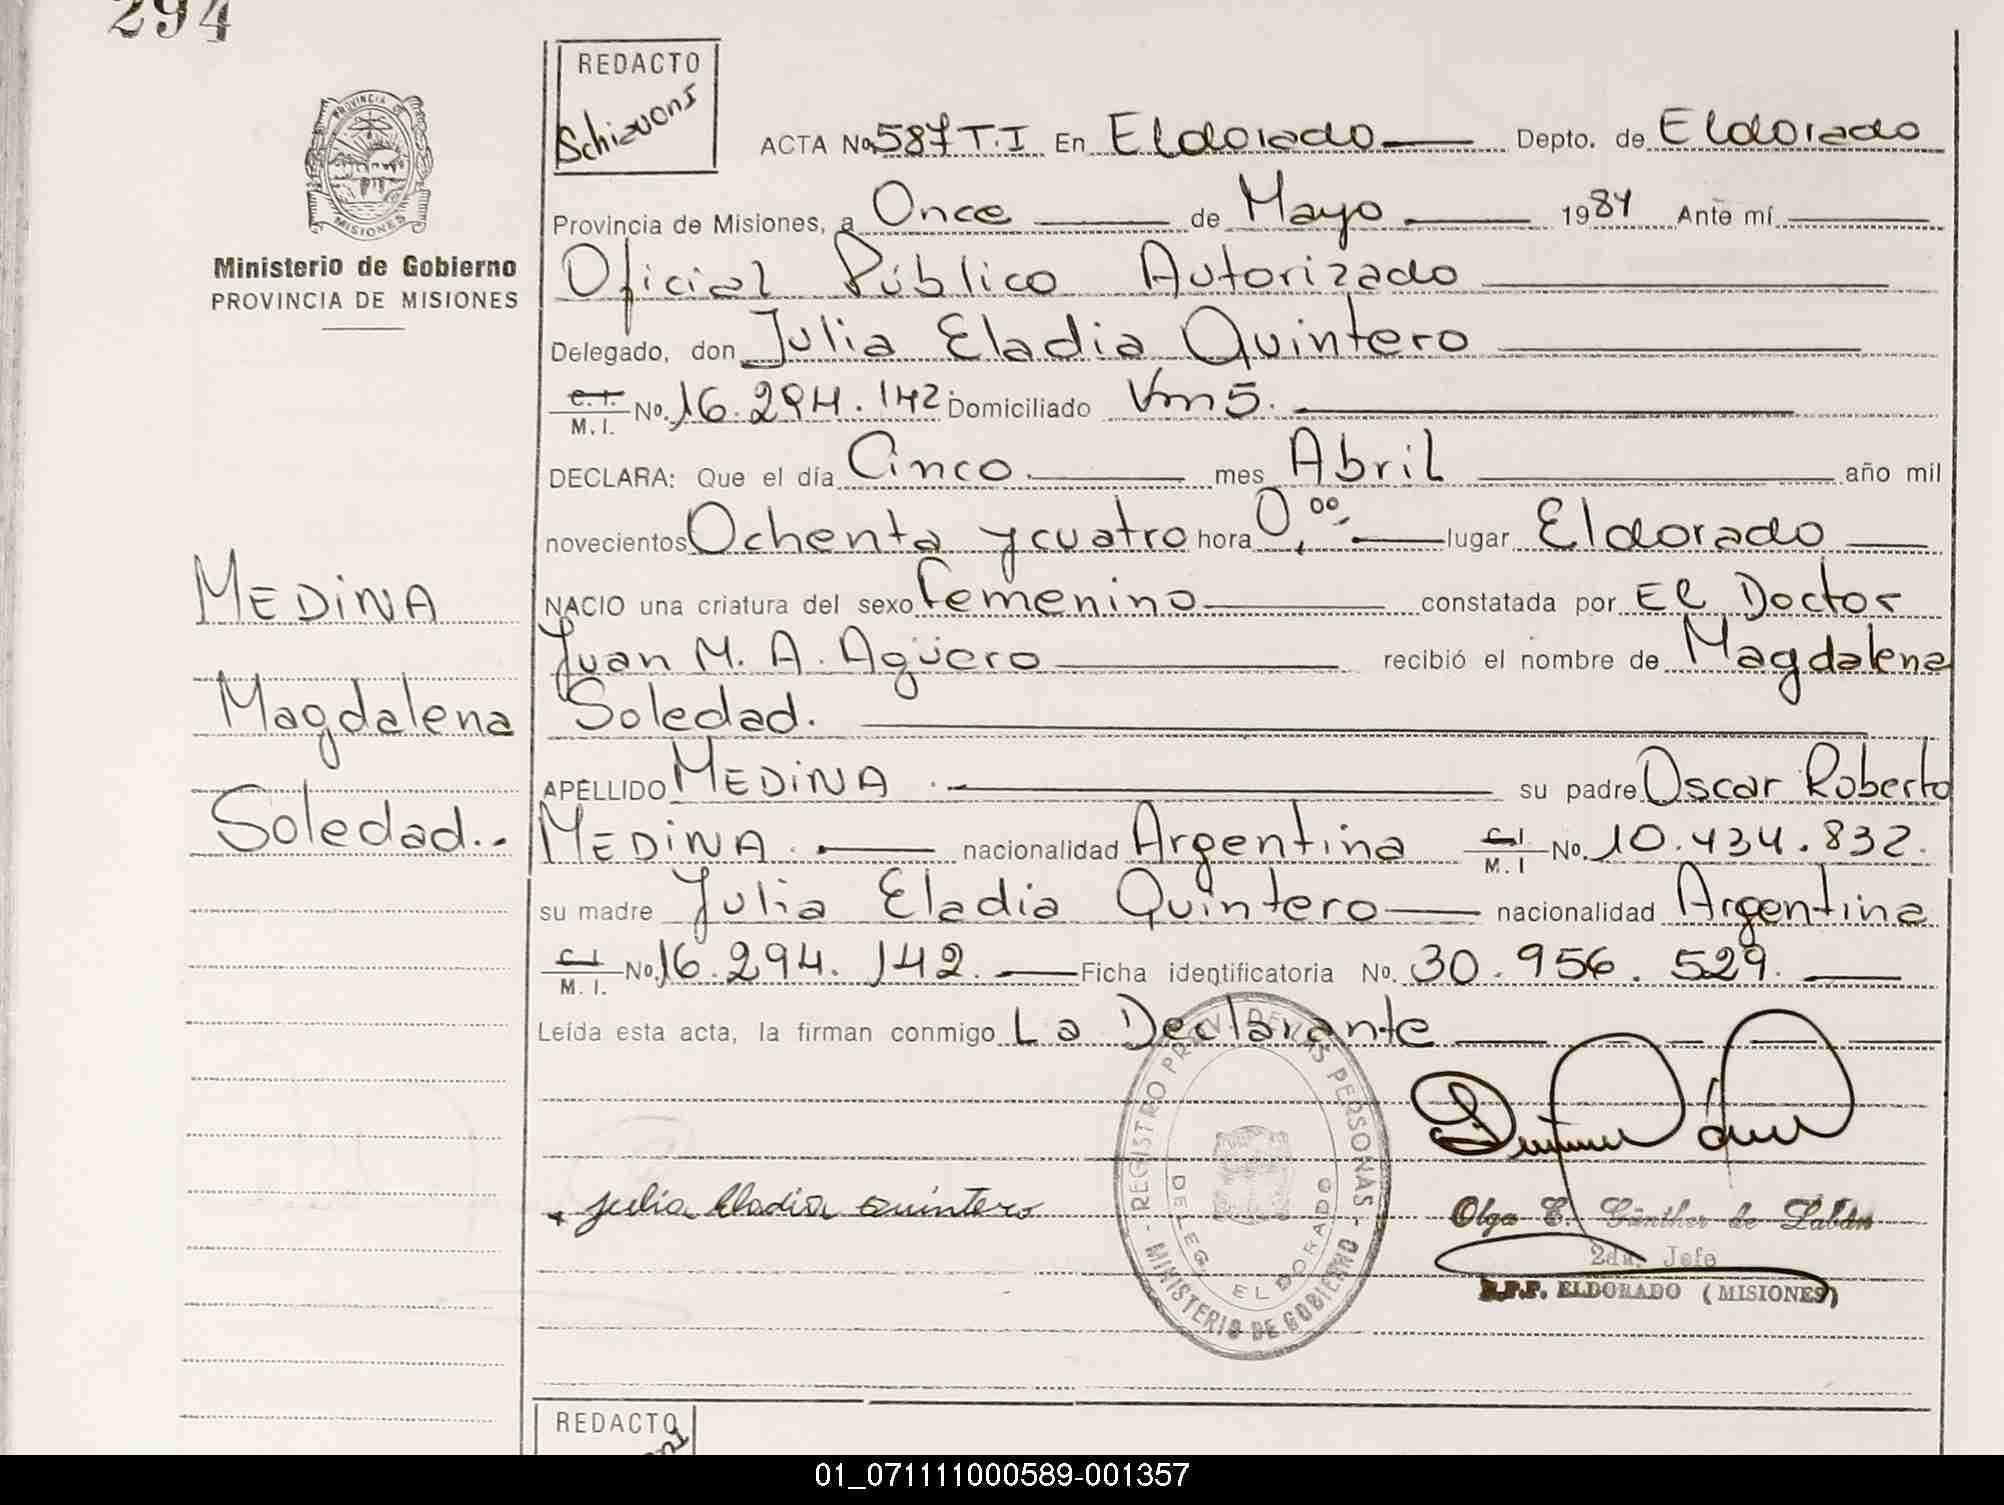 294
REDACTO
Schiavoni
PROVINCIA DE
MISIONES
Ministerio de Gobierno
PROVINCIA DE MISIONES
ACTA No. 587 T.I En Eldorado Depto. de Eldorado
Provincia de Misiones, a Once de Mayo 1984 Ante mí
Oficial Público Autorizado
Delegado, don Julia Eladia Quintero
C.I. M.I. No. 16.294.142. Domiciliado Km 5.
DECLARA: Que el día Cinco mes Abril año mil
novecientos Ochenta y cuatro hora 0,00 lugar Eldorado
NACIO una criatura del sexo Femenino constatada por El Doctor
Juan M. A. Agüero recibió el nombre de Magdalena
Soledad.
MEDINA
Magdalena
Soledad..
APELLIDO MEDINA su padre Oscar Roberto
MEDINA nacionalidad Argentina C.I. M.I No. 10.434.832.
su madre Julia Eladia Quintero nacionalidad Argentina
C.I. M.I. No. 16.294.142. Ficha identificatoria No. 30.956.529.
Leída esta acta, la firman conmigo La Declarante
REGISTRO PROV. DE LAS PERSONAS - MINISTERIO DE GOBIERNO -
DELEG. ELDORADO
Julia Eladia Quintero
Olga E. Günther de Labán
2da. Jefe
R.P.P. ELDORADO (MISIONES)
REDACTO
01_071111000589-001357